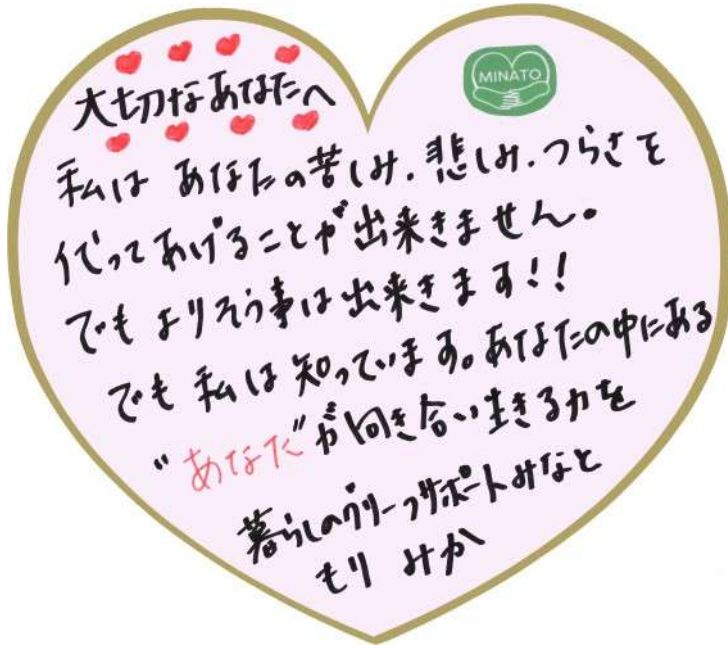 MINATO
大切なあなたへ
私は あなたの苦しみ.悲しみ.つらさを
代ってあげることが出来きません。
でもよりそう事は出来きます!!
でも私は知っています。あなたの中にある
"あなた"が向き合い生きる力を
暮らしのグリーフサポートみなと
もり みか